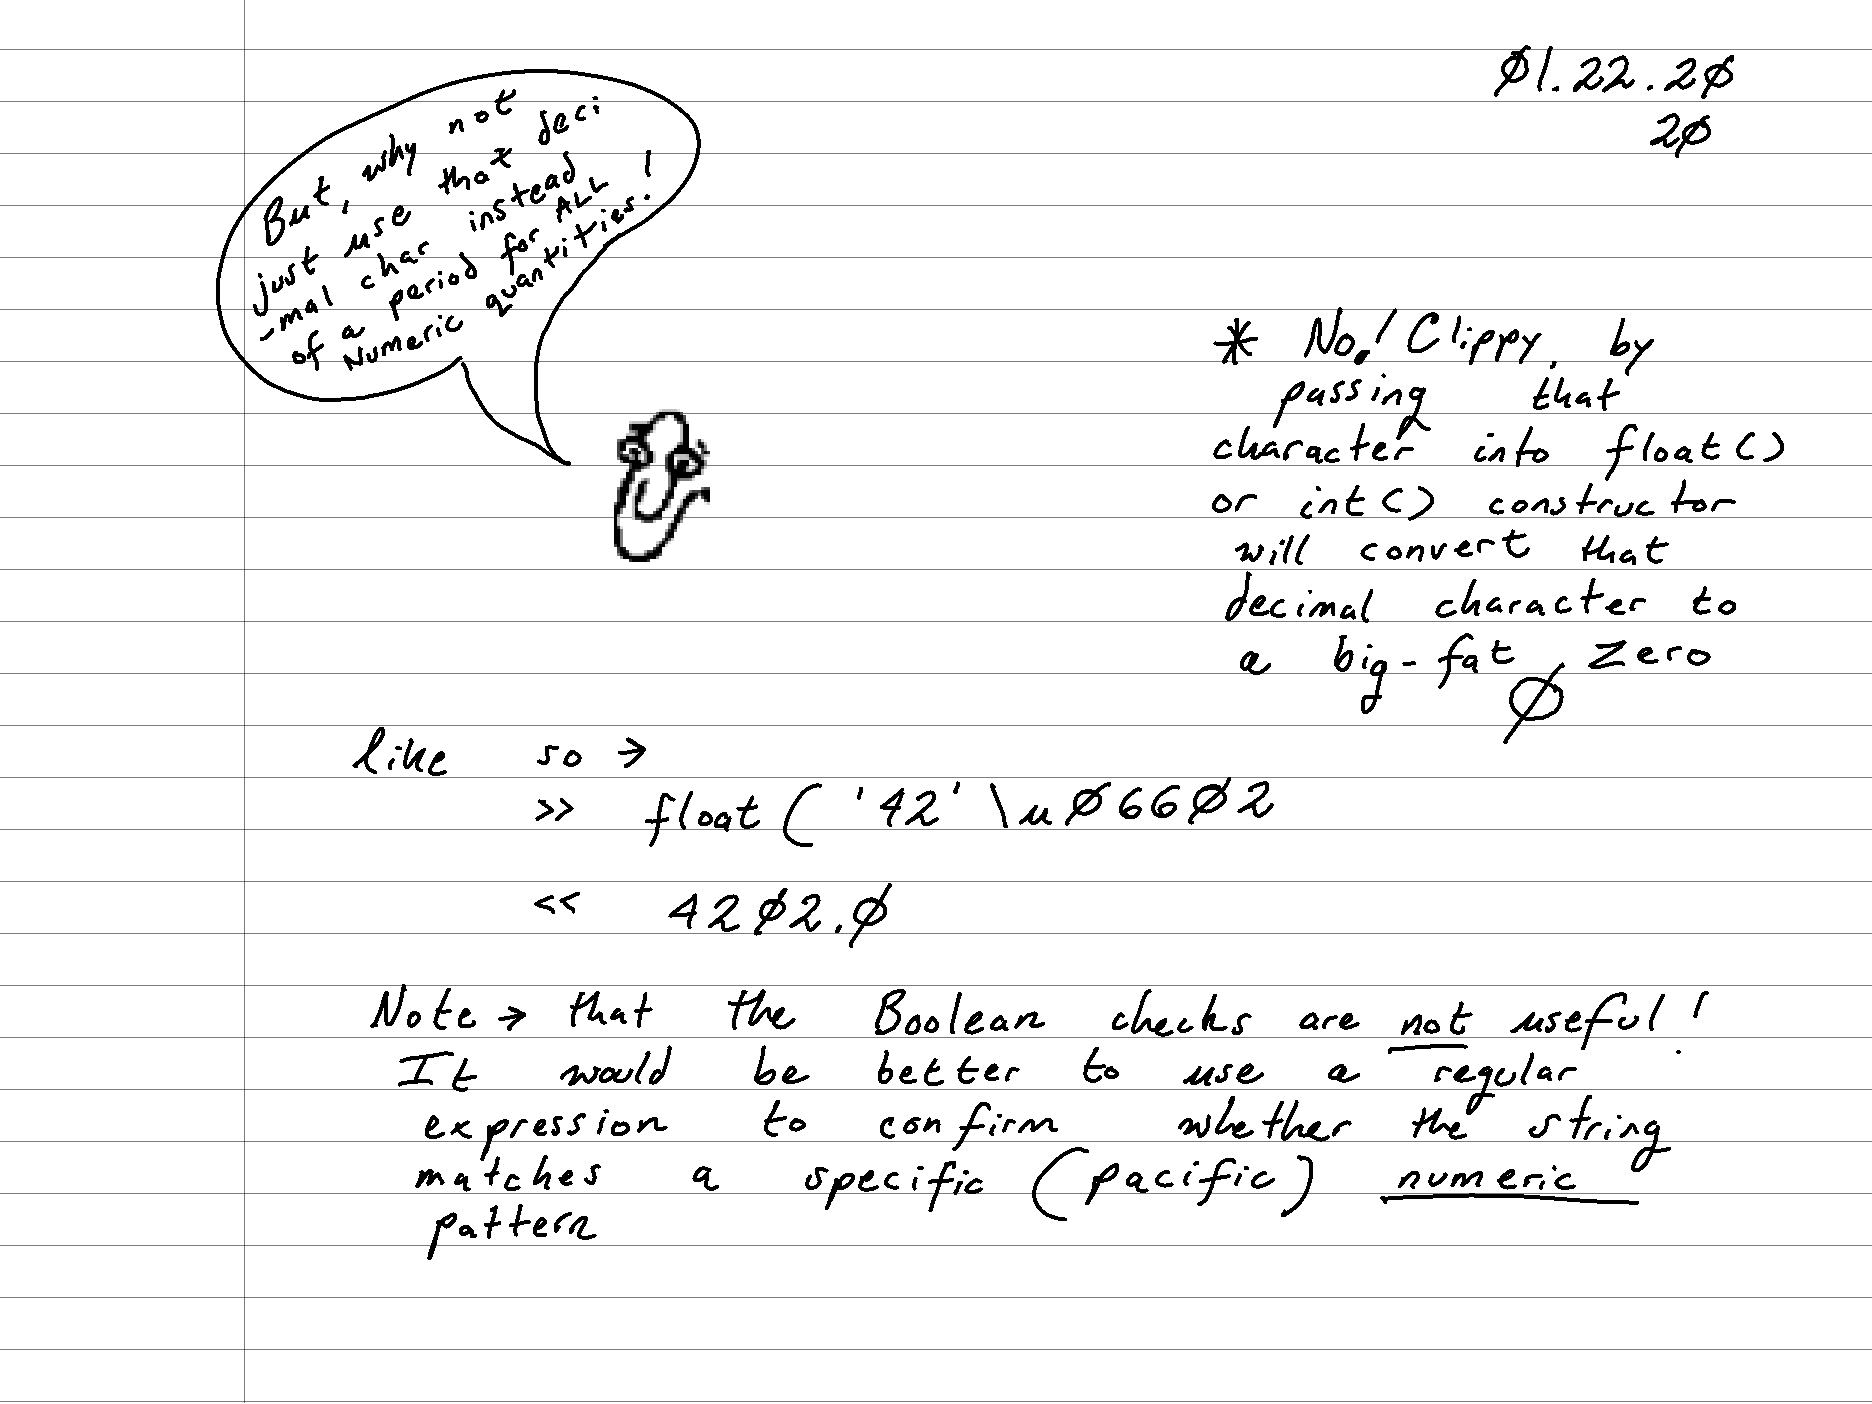 01.22.20
20
But, why not
just use that deci
-mal char instead
of a period for ALL
Numeric quantities.!
* No.! Clippy, by
passing that
character into float()
or int() constructor
will convert that
decimal character to
a big-fat zero
0
like so →
>> float ( '42' \u06602
<< 4202.0
Note → that the Boolean checks are not useful!
It would be better to use a regular
expression to confirm whether the string
matches a specific (pacific) numeric
pattern